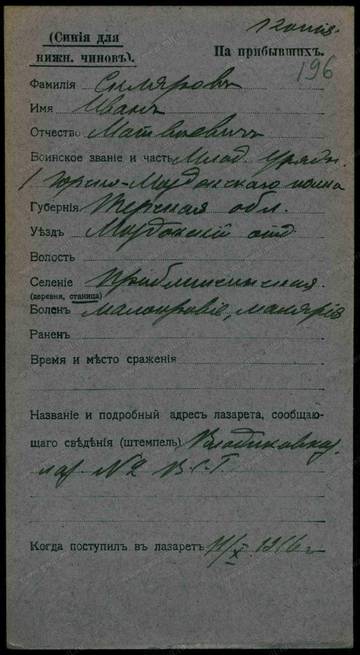 1 опія.
(Синія для
нижн. чиновъ).
На прибывшихъ.
196
Фамилія Скляровъ
Имя Иванъ
Отчество Матвѣевичъ
Воинское званіе и часть Млад. Урядн.
1 Горско-Моздокскаго полка
Губернія Терская обл.
Уѣздъ Моздокскій отд
Волость
Селеніе
(деревня, станица)
Боленъ малокровіе, малярія
Раненъ
Время и мѣсто сраженія
Названіе и подробный адресъ лазарета, сообщаю-
щаго свѣдѣнія (штемпель) Владикавказ.
лаз №2 В.С.Г.
Когда поступилъ въ лазаретъ 11/X 1916 г.